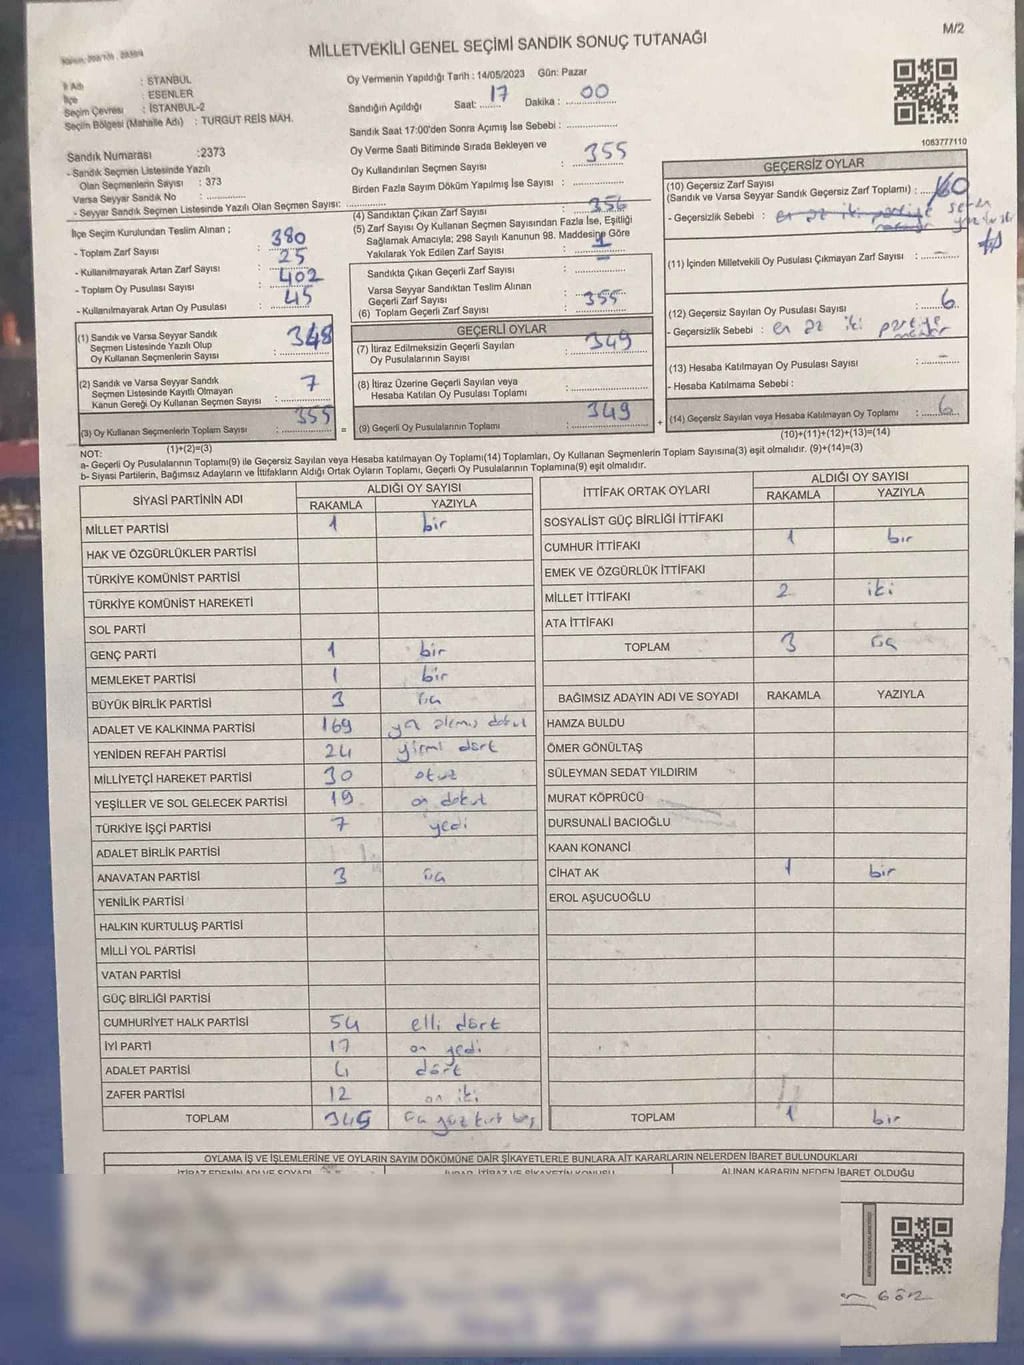 M/2
MİLLETVEKİLİ GENEL SEÇİMİ SANDIK SONUÇ TUTANAĞI
İl Adı : İSTANBUL
İlçe : ESENLER
Seçim Çevresi : İSTANBUL-2
Seçim Bölgesi (Mahalle Adı) : TURGUT REİS MAH.
Oy Vermenin Yapıldığı Tarih : 14/05/2023 Gün: Pazar
Sandığın Açıldığı Saat: 17 Dakika : 00
Sandık Saat 17:00'den Sonra Açımış İse Sebebi :
Oy Verme Saati Bitiminde Sırada Bekleyen ve
Oy Kullandırılan Seçmen Sayısı : 355
Birden Fazla Sayım Döküm Yapılmış İse Sayısı :
1083777110
Sandık Numarası :2373
- Sandık Seçmen Listesinde Yazılı
Olan Seçmenlerin Sayısı : 373
Varsa Seyyar Sandık No :
- Seyyar Sandık Seçmen Listesinde Yazılı Olan Seçmen Sayısı:
İlçe Seçim Kurulundan Teslim Alınan ;
- Toplam Zarf Sayısı : 380
- Kullanılmayarak Artan Zarf Sayısı : 25
- Toplam Oy Pusulası Sayısı : 402
- Kullanılmayarak Artan Oy Pusulası : 45
(1) Sandık ve Varsa Seyyar Sandık
Seçmen Listesinde Yazılı Olup
Oy Kullanan Seçmenlerin Sayısı : 348
(2) Sandık ve Varsa Seyyar Sandık
Seçmen Listesinde Kayıtlı Olmayan
Kanun Gereği Oy Kullanan Seçmen Sayısı : 7
(3) Oy Kullanan Seçmenlerin Toplam Sayısı : 355
(1)+(2)=(3)
(4) Sandıktan Çıkan Zarf Sayısı : 356
(5) Zarf Sayısı Oy Kullanan Seçmen Sayısından Fazla İse, Eşitliği
Sağlamak Amacıyla; 298 Sayılı Kanunun 98. Maddesine Göre
Yakılarak Yok Edilen Zarf Sayısı : 1
Sandıkta Çıkan Geçerli Zarf Sayısı :
Varsa Seyyar Sandıktan Teslim Alınan
Geçerli Zarf Sayısı :
(6) Toplam Geçerli Zarf Sayısı : 355
GEÇERLİ OYLAR
(7) İtiraz Edilmeksizin Geçerli Sayılan
Oy Pusulalarının Sayısı : 349
(8) İtiraz Üzerine Geçerli Sayılan veya
Hesaba Katılan Oy Pusulası Toplamı :
= (9) Geçerli Oy Pusulalarının Toplamı : 349
GEÇERSİZ OYLAR
(10) Geçersiz Zarf Sayısı
(Sandık ve Varsa Seyyar Sandık Geçersiz Zarf Toplamı) :
- Geçersizlik Sebebi : en az iki partiye
(11) İçinden Milletvekili Oy Pusulası Çıkmayan Zarf Sayısı : -
(12) Geçersiz Sayılan Oy Pusulası Sayısı : 6
- Geçersizlik Sebebi : en az iki partiye
(13) Hesaba Katılmayan Oy Pusulası Sayısı : -
- Hesaba Katılmama Sebebi :
+ (14) Geçersiz Sayılan veya Hesaba Katılmayan Oy Toplamı : 6
(10)+(11)+(12)+(13)=(14)
NOT:
a- Geçerli Oy Pusulalarının Toplamı(9) ile Geçersiz Sayılan veya Hesaba Katılmayan Oy Toplamı(14) Toplamları, Oy Kullanan Seçmenlerin Toplam Sayısına(3) eşit olmalıdır. (9)+(14)=(3)
b- Siyasi Partilerin, Bağımsız Adayların ve İttifakların Aldığı Ortak Oyların Toplamı, Geçerli Oy Pusulalarının Toplamına(9) eşit olmalıdır.
SİYASİ PARTİNİN ADI ALDIĞI OY SAYISI
RAKAMLA YAZIYLA
MİLLET PARTİSİ 1 bir
HAK VE ÖZGÜRLÜKLER PARTİSİ
TÜRKİYE KOMÜNİST PARTİSİ
TÜRKİYE KOMÜNİST HAREKETİ
SOL PARTİ
GENÇ PARTİ 1 bir
MEMLEKET PARTİSİ 1 bir
BÜYÜK BİRLİK PARTİSİ 3 üç
ADALET VE KALKINMA PARTİSİ 169 yüz altmış dokuz
YENİDEN REFAH PARTİSİ 24 yirmi dört
MİLLİYETÇİ HAREKET PARTİSİ 30 otuz
YEŞİLLER VE SOL GELECEK PARTİSİ 19 on dokuz
TÜRKİYE İŞÇİ PARTİSİ 7 yedi
ADALET BİRLİK PARTİSİ
ANAVATAN PARTİSİ 3 üç
YENİLİK PARTİSİ
HALKIN KURTULUŞ PARTİSİ
MİLLİ YOL PARTİSİ
VATAN PARTİSİ
GÜÇ BİRLİĞİ PARTİSİ
CUMHURİYET HALK PARTİSİ 54 elli dört
İYİ PARTİ 17 on yedi
ADALET PARTİSİ 4 dört
ZAFER PARTİSİ 12 on iki
TOPLAM 345 üç yüz kırk beş
İTTİFAK ORTAK OYLARI ALDIĞI OY SAYISI
RAKAMLA YAZIYLA
SOSYALİST GÜÇ BİRLİĞİ İTTİFAKI
CUMHUR İTTİFAKI 1 bir
EMEK VE ÖZGÜRLÜK İTTİFAKI
MİLLET İTTİFAKI 2 iki
ATA İTTİFAKI
TOPLAM 3 üç
BAĞIMSIZ ADAYIN ADI VE SOYADI RAKAMLA YAZIYLA
HAMZA BULDU
ÖMER GÖNÜLTAŞ
SÜLEYMAN SEDAT YILDIRIM
MURAT KÖPRÜCÜ
DURSUNALİ BACIOĞLU
KAAN KONANCİ
CİHAT AK 1 bir
EROL AŞUCUOĞLU
TOPLAM 1 bir
OYLAMA İŞ VE İŞLEMLERİNE VE OYLARIN SAYIM DÖKÜMÜNE DAİR ŞİKAYETLERLE BUNLARA AİT KARARLARIN NELERDEN İBARET BULUNDUKLARI
İTİRAZ EDENİN ADI VE SOYADI
ALINAN KARARIN NEDEN İBARET OLDUĞU